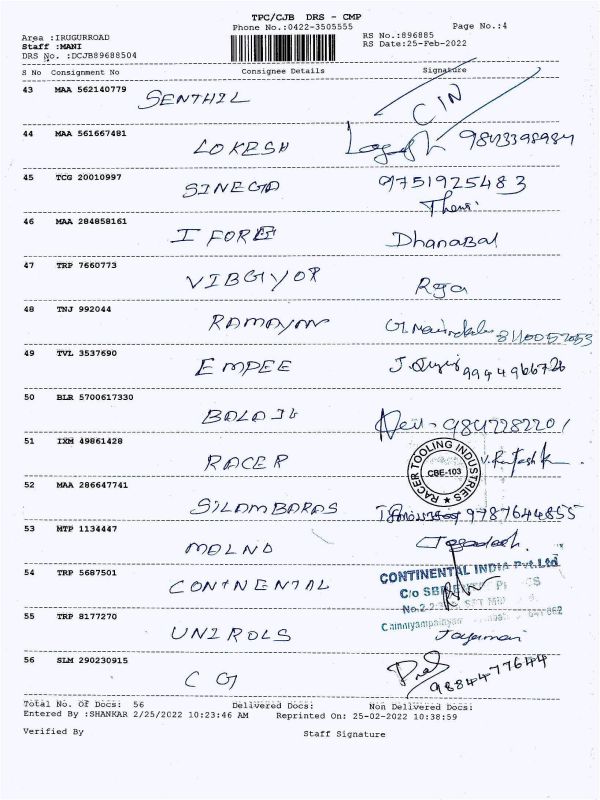 TPC/CJB DRS - CMP
Phone No.:0422-3505555
Page No.:4
Area :IRUGURROAD
RS No.:896885
Staff :MANI
RS Date:25-Feb-2022
DRS No. :DCJB89688504
S No Consignment No Consignee Details Signature
43 MAA 562140779 SENTHIL CIN
44 MAA 561667481 LOKESH
45 TCG 20010997 SINEGA 9751925483
46 MAA 284858161 I FORE Dhanabal
47 TRP 7660773 VIBGIYOR Raja
48 TNJ 992044 RAMAYAN
49 TVL 3537690 EMPEE
50 BLR 5700617330 BALAJI
51 IXM 49861428 RACER
RACER TOOLING INDUSTRIES
CBE-103
52 MAA 286647741 SILAMBARAS 9787644855
53 MTP 1134447
54 TRP 5687501 CONTNENTAL
CONTINENTAL INDIA Pvt.Ltd
C/o
55 TRP 8177270 UNIROLS Jayamani
56 SLM 290230915 CG 9884477644
Total No. Of Docs: 56 Delivered Docs: Non Delivered Docs:
Entered By :SHANKAR 2/25/2022 10:23:46 AM Reprinted On: 25-02-2022 10:38:59
Verified By Staff Signature